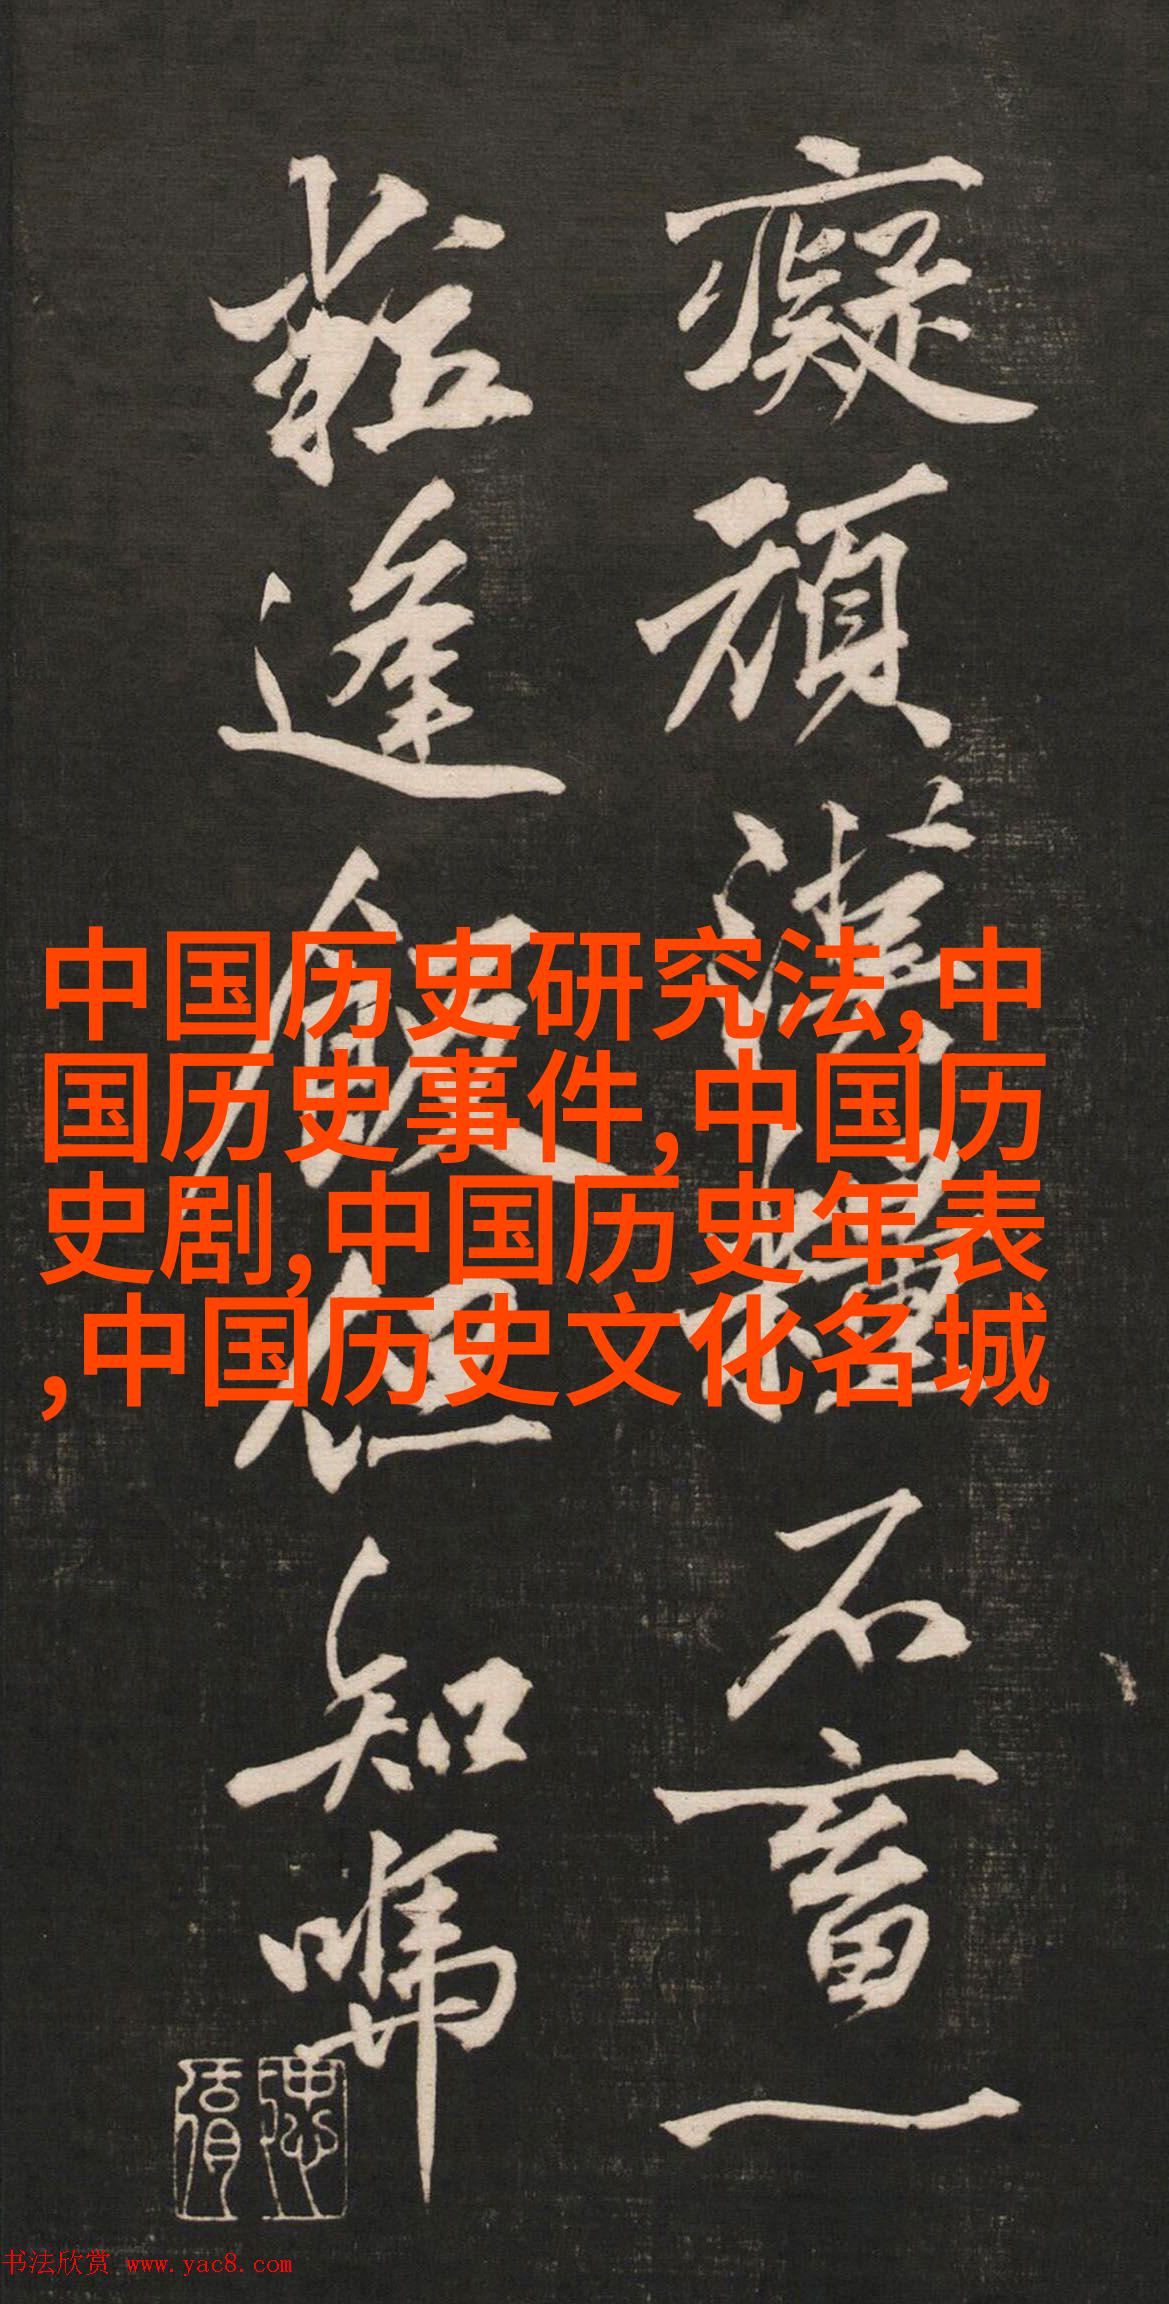 癡頑漢不畜一
粒逢飯但知
中国历史研究法,中
国历史事件,中国历
史剧,中国历史年表
,中国历史文化名城
书法欣赏 www.yac8.com